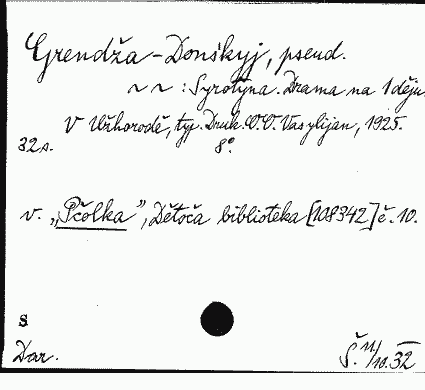 Grendža-Donśkyj, pseud.
~ ~ : Syrotyna. Drama na 1 ději.
V Užhorodě, typ. Druk. O.O. Vasylijan, 1925.
32 s. 8°.
v. „Pčôlka", Dětoča biblioteka [108342] č. 10.
S
Dar. Š. 11/10.32